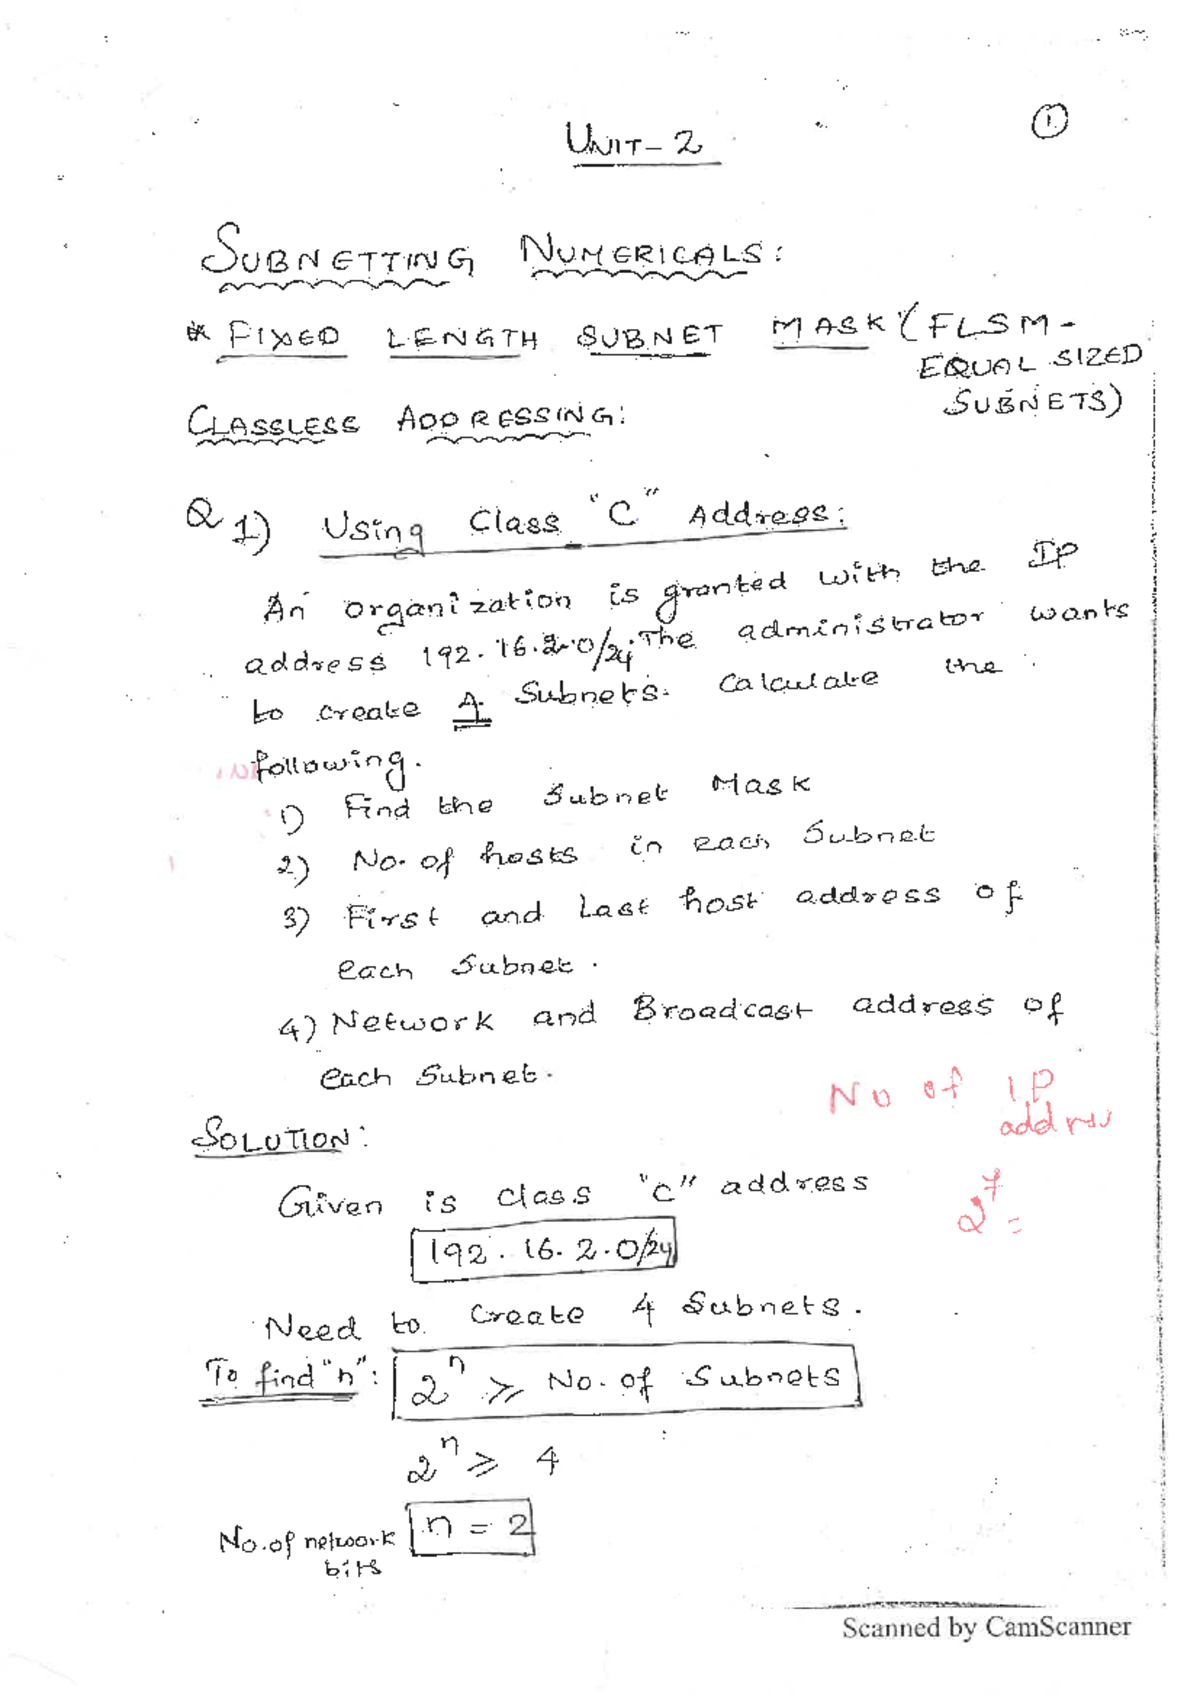 1
UNIT-2
SUBNETTING NUMERICALS:
* FIXED LENGTH SUBNET MASK (FLSM-
EQUAL SIZED
SUBNETS)
CLASSLESS ADDRESSING:
Q1) Using Class "C" Address:
An organization is granted with the IP
address 192.16.2.0/24. The administrator wants
to create 4 Subnets. Calculate the
following.
1) Find the Subnet Mask
2) No. of hosts in each Subnet
3) First and Last host address of
each Subnet.
4) Network and Broadcast address of
each Subnet.
No of IP
SOLUTION:
Given is class "C" address
2^7 =
192.16.2.0/24
Need to create 4 Subnets.
To find "n": 2^n ≥ No. of Subnets
2^n ≥ 4
No. of network n = 2
bits
Scanned by CamScanner